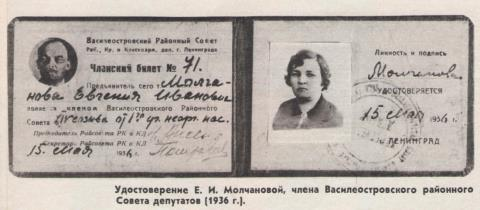 Василеостровский Районный Совет
Раб., Кр. и Красноарм. деп. г. Ленинграда
Членский билет № 71.
Предъявитель сего т. Молча-
нова Евгения Ивановна
членом Василеостровского Районного
Совета
Председатель Райсовета РК и КД
Секретарь Райсовета РК и КД
15 Мая 1936 г.
Личность и подпись
Молчановой
УДОСТОВЕРЯЕТСЯ
15 Мая 1936 г.
ЛЕНИНГРАД
Удостоверение Е. И. Молчановой, члена Василеостровского районного
Совета депутатов (1936 г.).